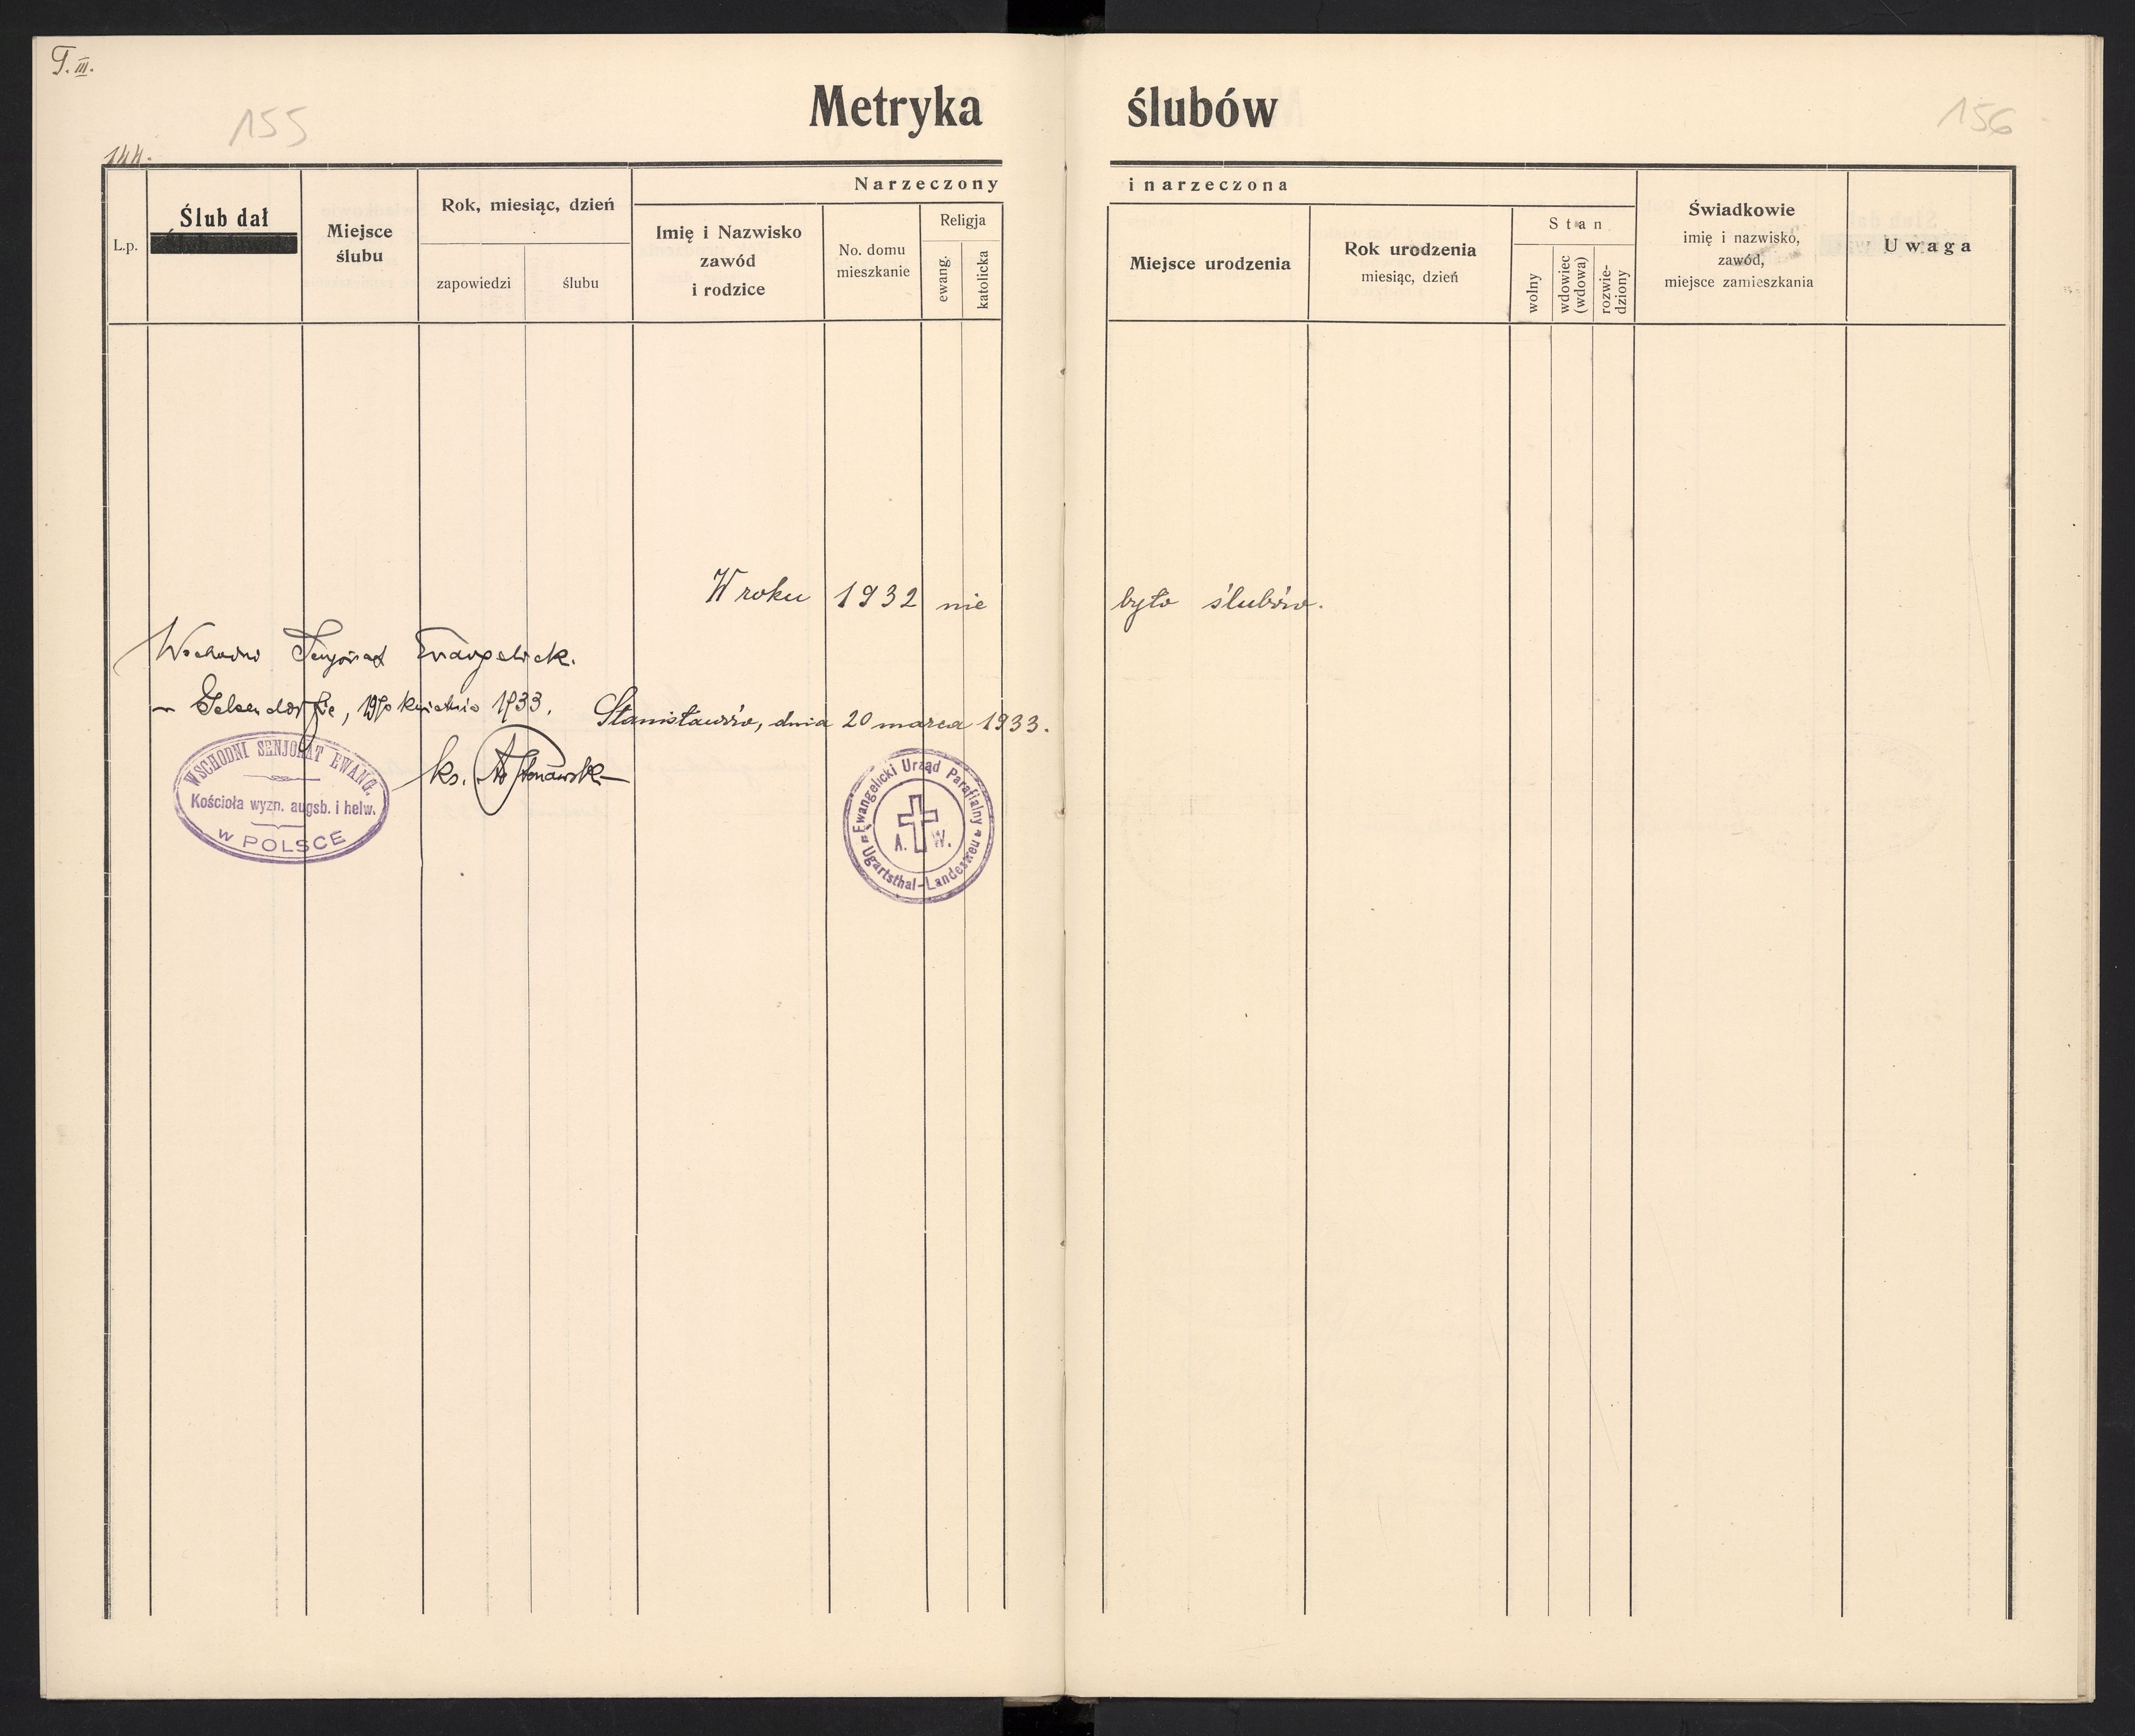 T. III.
155
156
144.
Metryka ślubów
L.p.
Ślub dał
Miejsce
ślubu
Rok, miesiąc, dzień
zapowiedzi
ślubu
Narzeczony i narzeczona
Imię i Nazwisko
zawód
i rodzice
No. domu
mieszkanie
Religja
ewang.
katolicka
Miejsce urodzenia
Rok urodzenia
miesiąc, dzień
Stan
wolny
wdowiec
(wdowa)
rozwie-
dziony
Świadkowie
imię i nazwisko,
zawód,
miejsce zamieszkania
Uwaga
W roku 1932 nie było ślubów.
Wschodni Senjorat Ewangelick.
Gelsendorfie, kwietnia 1933.
Stanisławów, dnia 20 marca 1933.
ks.
WSCHODNI SENJORAT EWANG.
Kościoła wyzn. augsb. i helw.
W POLSCE
Ewangelicki Urząd Parafialny
A. W.
Ugartsthal-Landestreu